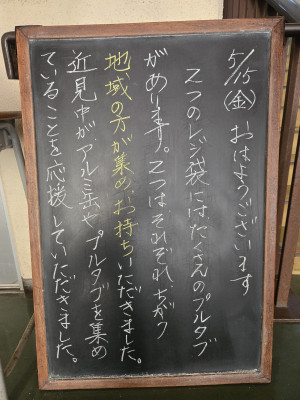 5/15(金) おはようございます
2つのレジ袋にはたくさんのプルタブ
があります。2つはそれぞれ、ちがう
地域の方が集め、お持ちいただきました。
近見中がアルミ缶や、プルタブを集め
ていることを応援していただきました。